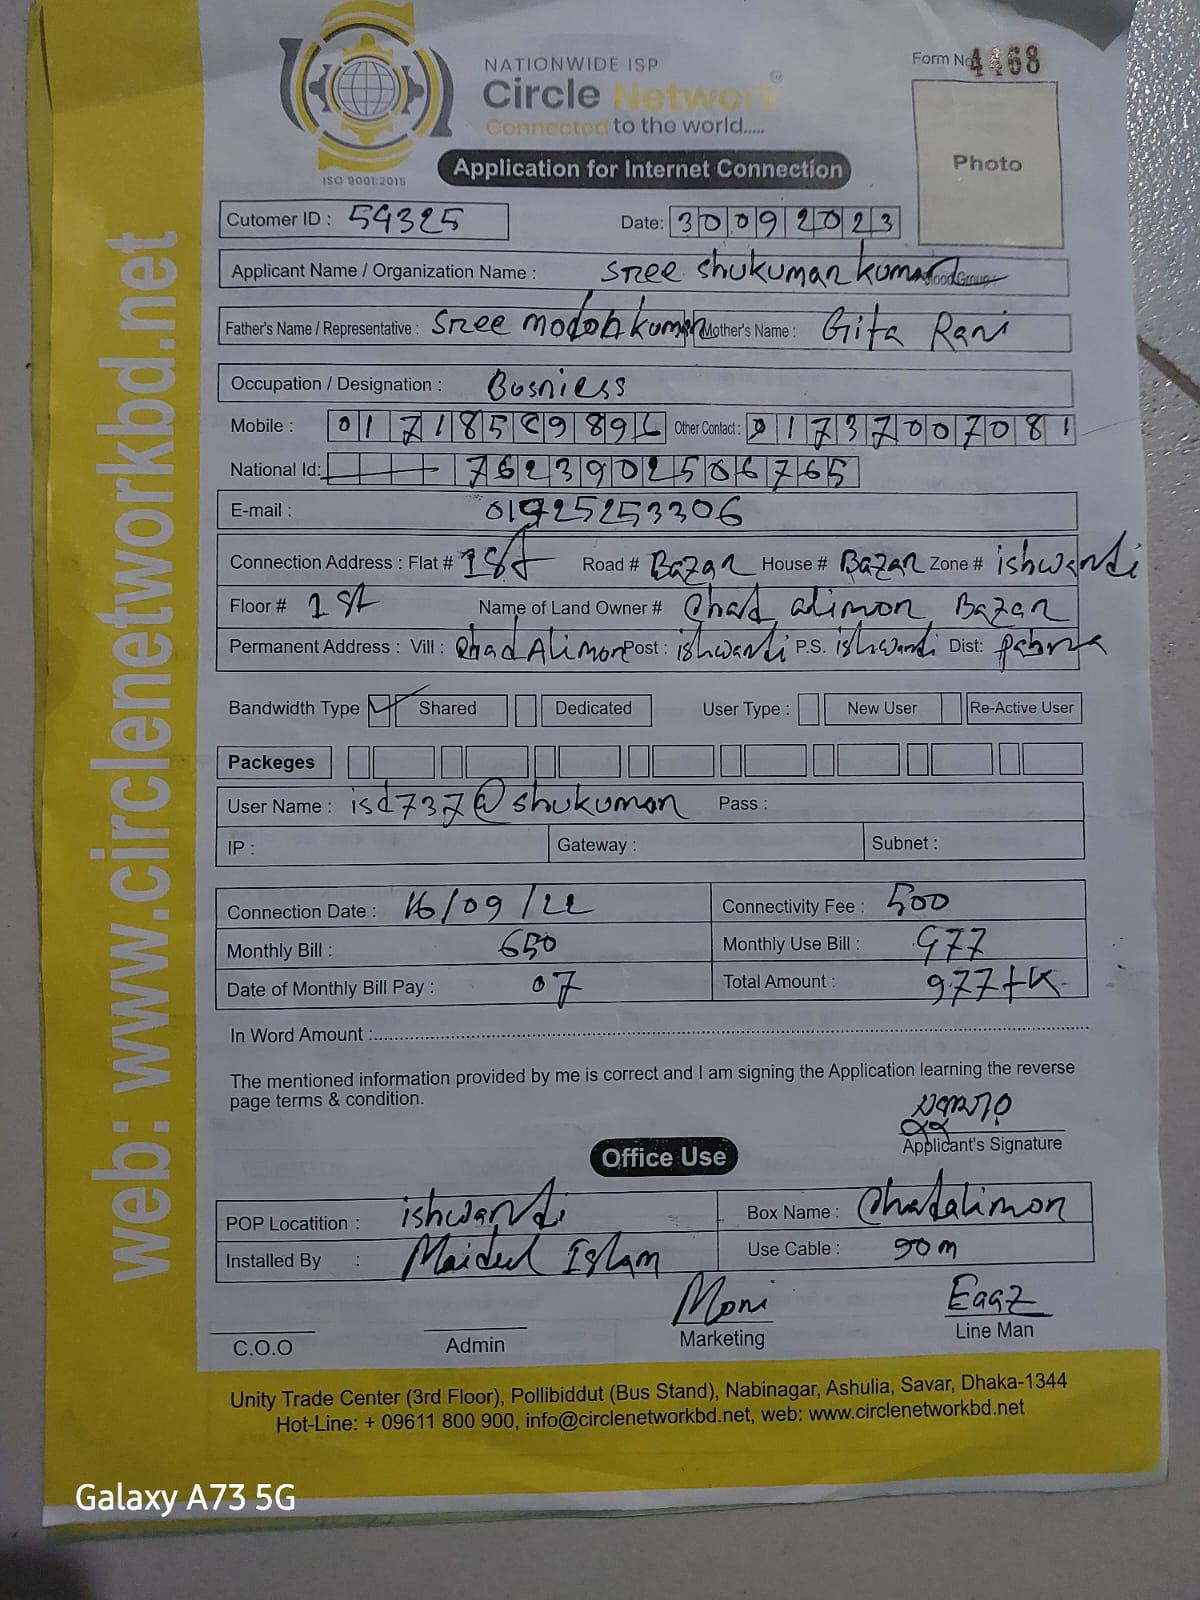 NATIONWIDE ISP
Circle Network
Connected to the world.....
ISO 9001:2015
Form No 4468
Photo
Application for Internet Connection
Cutomer ID : 54325 Date: 30092023
Applicant Name / Organization Name : Sree Shukumar kumar Blood Group :
Father's Name / Representative : Sree modon kumar Mother's Name : Gita Rani
Occupation / Designation : Bosniess
Mobile : Other Contact : 01737007081
National Id: 7623902506765
E-mail : 01925253306
Connection Address : Flat # 1st Road # Bazar House # Bazar Zone # ishwardi
Floor # 1st Name of Land Owner # Chad alimor Bazar
Permanent Address : Vill : Chad Alimor Post : ishwardi P.S. ishwardi Dist: pabna
Bandwidth Type Shared Dedicated User Type : New User Re-Active User
Packeges
User Name : isd737@shukumar Pass :
IP : Gateway : Subnet :
Connection Date : 16/09/22 Connectivity Fee : 500
Monthly Bill : 650 Monthly Use Bill : 977
Date of Monthly Bill Pay : 07 Total Amount : 977tk
In Word Amount :
The mentioned information provided by me is correct and I am signing the Application learning the reverse
page terms & condition.
Applicant's Signature
Office Use
POP Locatition : ishwardi Box Name : Chadalimor
Installed By : Maidul Islam Use Cable : 90m
Moni Eaaz
C.O.O Admin Marketing Line Man
Unity Trade Center (3rd Floor), Pollibiddut (Bus Stand), Nabinagar, Ashulia, Savar, Dhaka-1344
Hot-Line: + 09611 800 900, info@circlenetworkbd.net, web: www.circlenetworkbd.net
web: www.circlenetworkbd.net
Galaxy A73 5G